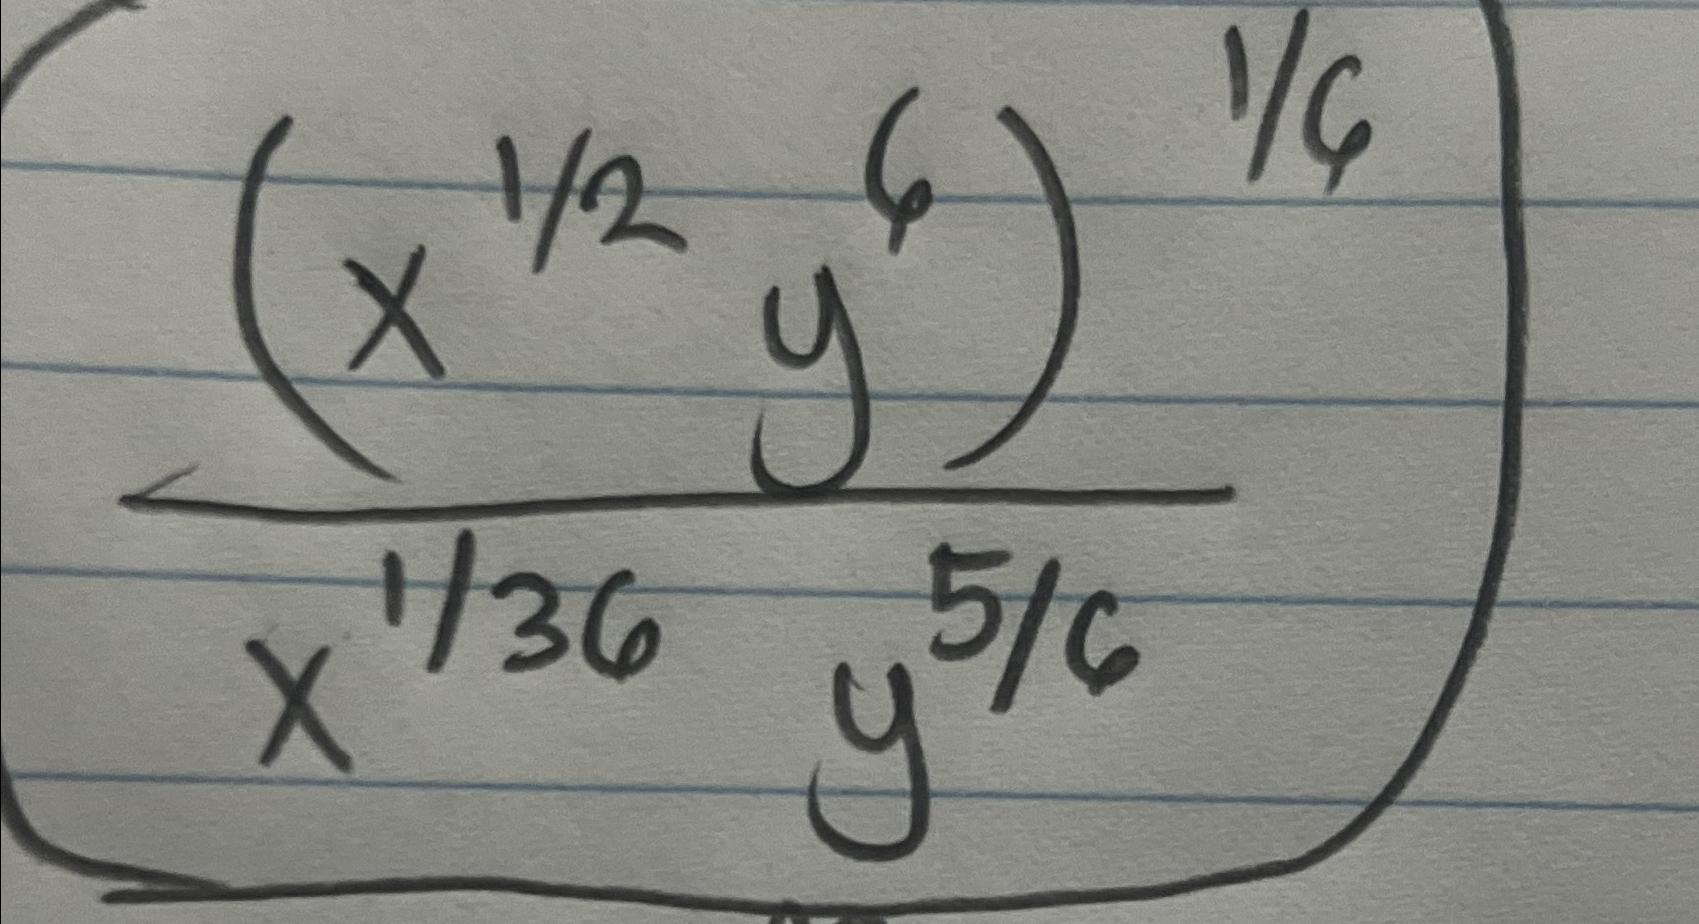 (x^1/2 y^6)^1/6
x^1/36 y^5/6